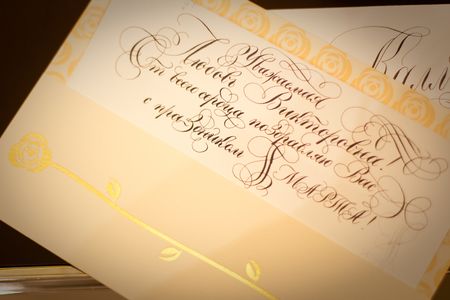 Уважаемая
Любовь Викторовна!
От всего сердца поздравляю Вас
с праздником 8 МАРТА!
Калли